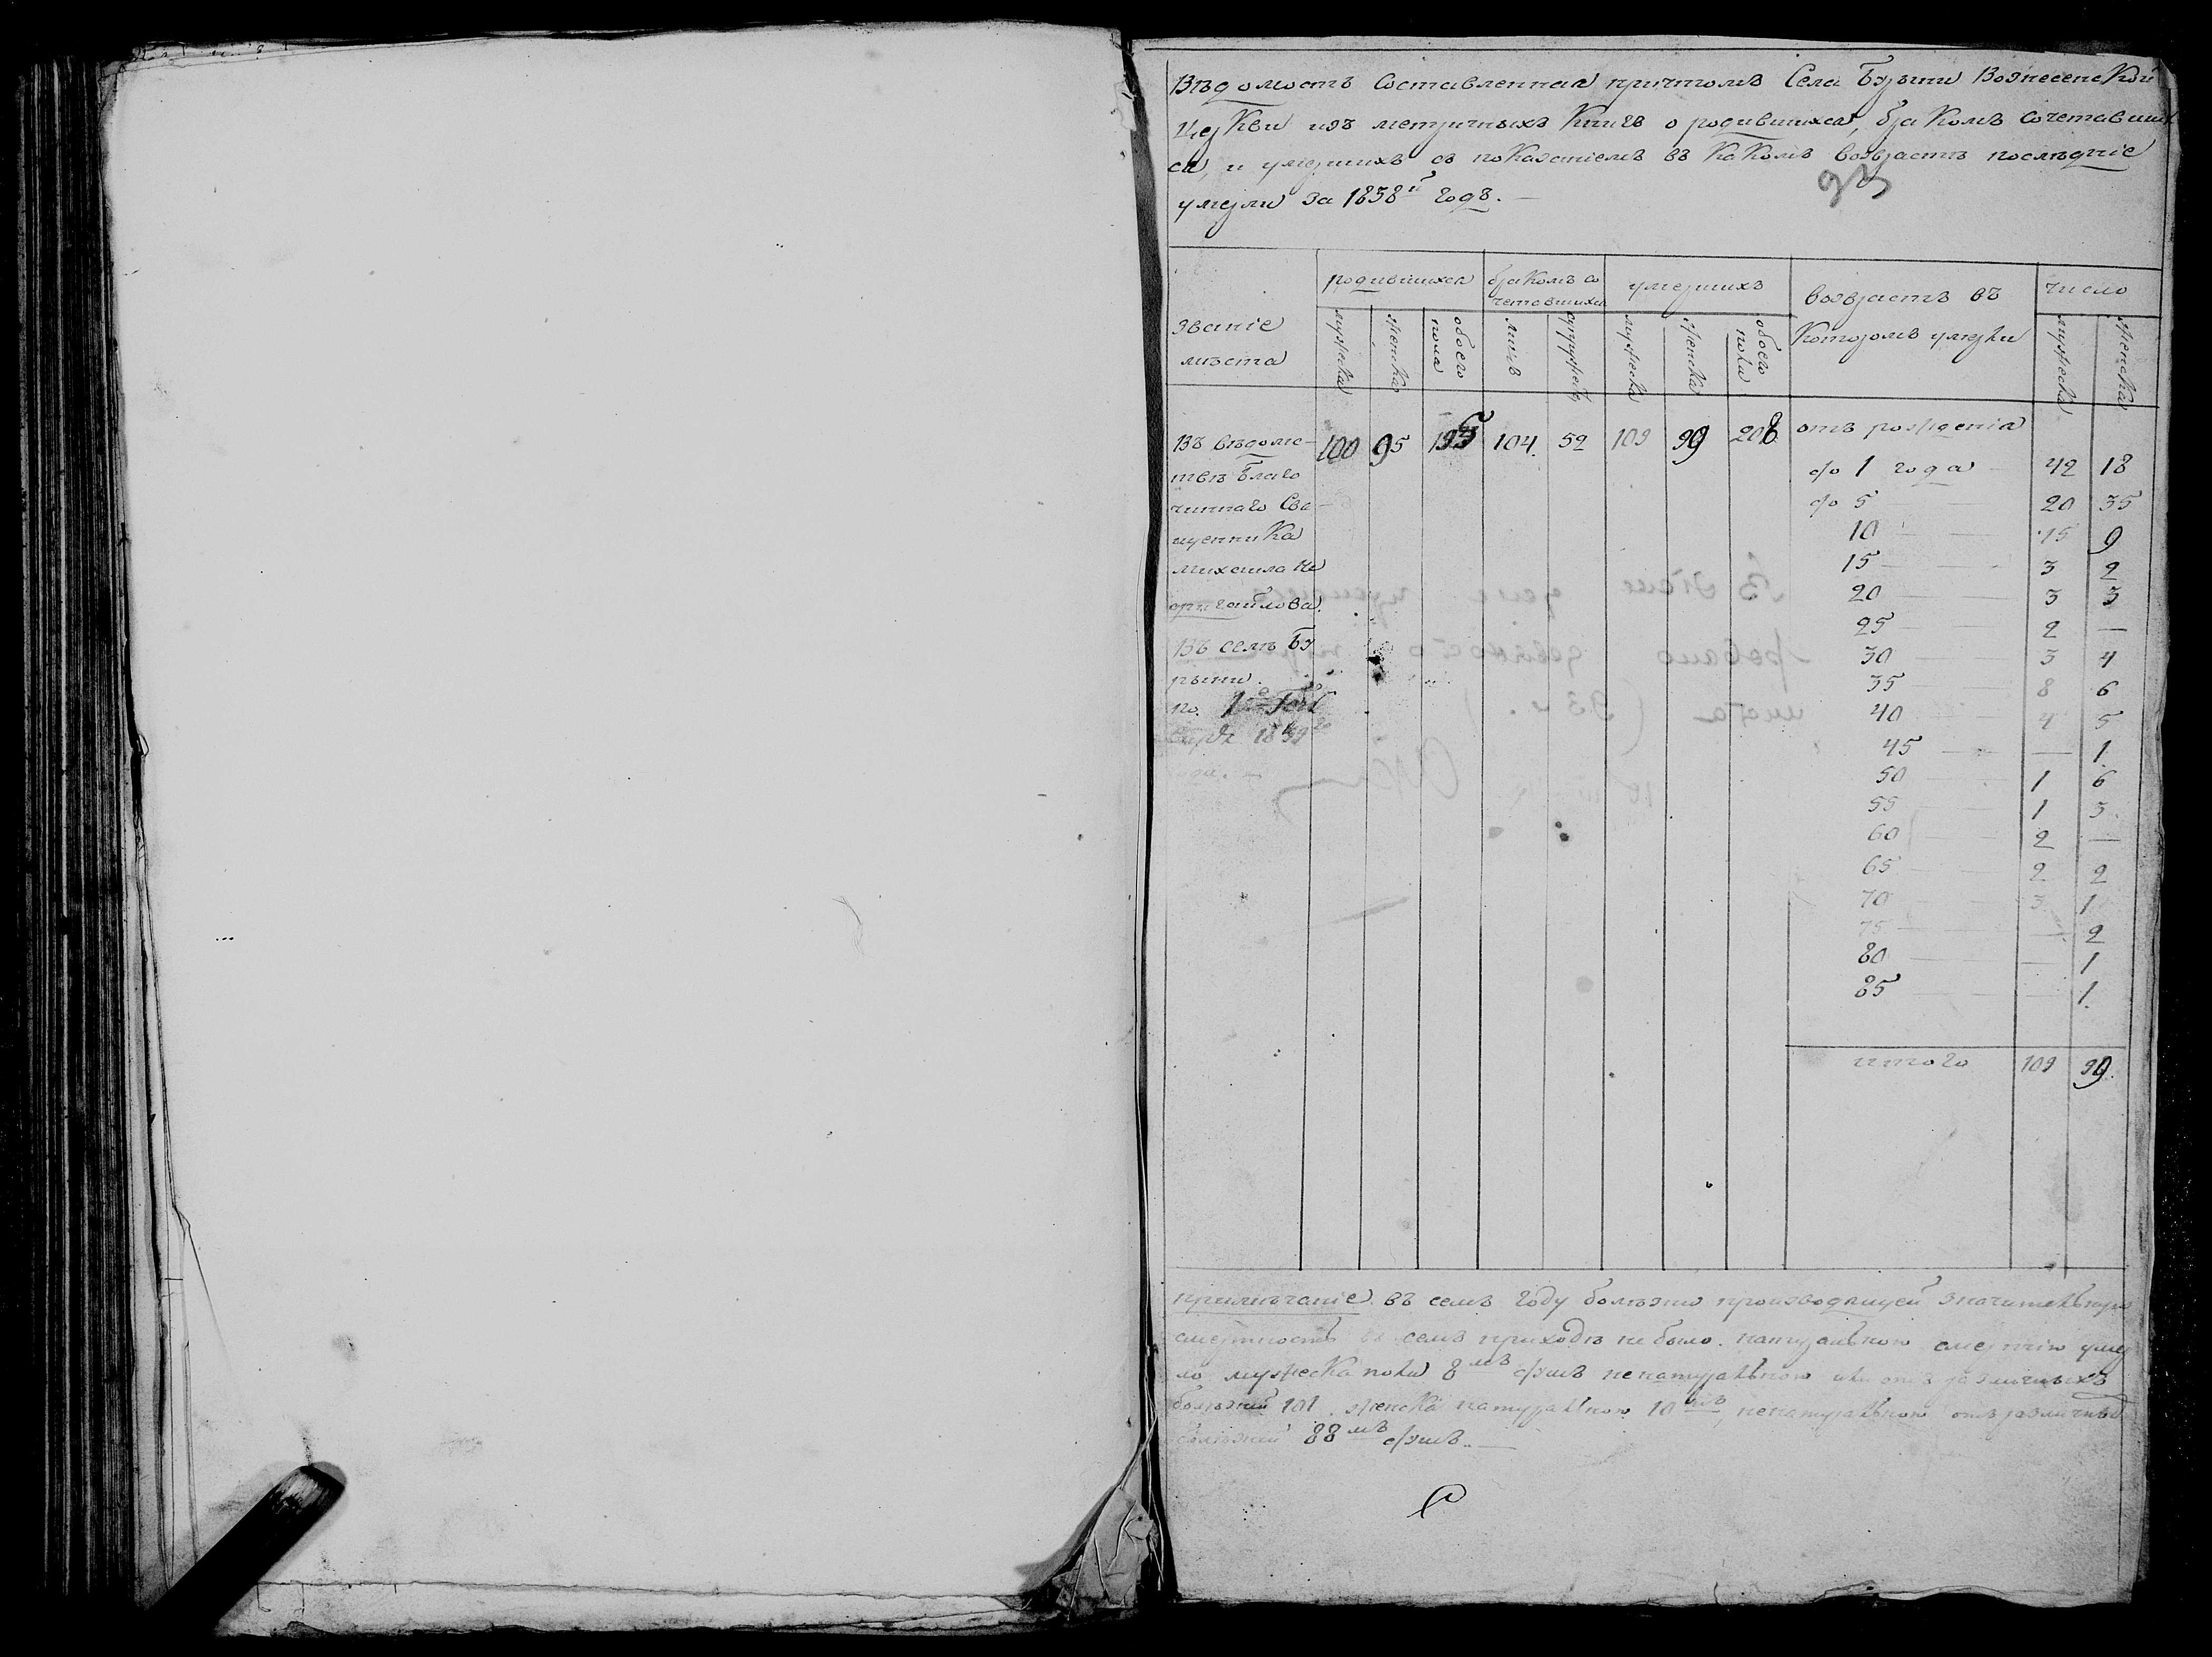 Вѣдомость Составленная причтомъ Села Бузыни Вознесенской
Церкви изъ метричныхъ Книгъ о родившихся, бракомъ сочетавших
ся, и умершихъ съ показаніемъ въ какомъ возрастѣ послѣдніе
умерли за 1838й годъ.
93
званіе мѣста
родившихся
бракомъ со
четавшихся
умершихъ
возрастъ въ
которомъ умерли
число
мужеска
женска
обоего пола
лицъ
супружествъ
мужеска
женска
обоего пола
мужеска
женска
Въ вѣдомс-
твѣ Благо
чиннаго Свя-
щенника
михаила
Въ селѣ Бу
100 95 195 104. 52 109 99 208.
отъ рожденія
до 1 года 42 18
до 5 — 20 35
10 — 15 9
15 — 3 2
20 — 3 3
25 — 2 —
30 — 3 4
35 — 8 6
40 4 5
45 — — 1.
50 — 1 6
55 — 1 3.
60 — 2 —
65 — 2 2
70 — 3 1
75 — — 2
80 — — 1
85 — — 1.
итого 109 99.
примѣчаніе въ семъ году болѣзни производящей значительную
смертность въ семъ приходѣ не было. натуральною смертію умер
ло мужеска пола 8мь душъ ненатуральною или отъ различныхъ
болѣзней 101. женска натуральною 10ть ненатуральною отъ различныхъ
болѣзней 88мь душъ.